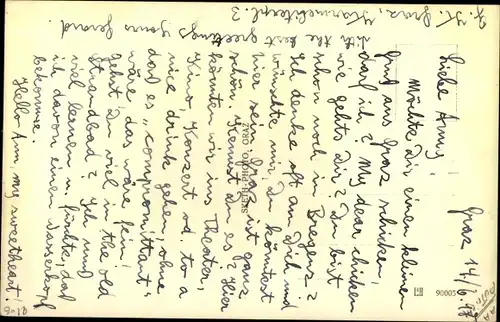 Graz 14/6 47
Liebe Army!
Möchte Dir einen kleinen
Gruß aus Graz schicken,
darf ich? My dear chicken
wie gehts Dir? Du bist
schon noch in Bregenz?
Ich denke oft an Dich und
wünschte mir, Du könntest
hier sein, Graz ist ganz
schön. Kennst Du es? Hier
könnten wir ins Theater,
Kino Konzert od. to a
nice drink gehen, ohne
daß es „compromittant"
wäre, das wäre fein!
Gehst Du viel in the old
Strandbad? Ich muß
viel lernen u. fürchte, daß
ich davon einen Wasserkopf
bekomme.
Hello Am, my sweetheart!
with the best greetings yours Gerard.
Graz, Karmeliterpl. 3
STEFFEN-PHOTO, GRAZ
90005